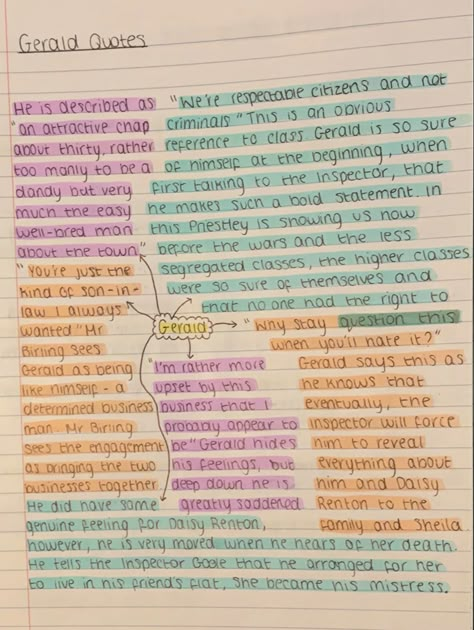 Gerald Quotes
He is described as
"an attractive chap
about thirty, rather
too manly to be a
dandy but very
much the easy
well-bred man
about the town"
"We're respectable citizens and not
criminals" This is an obvious
reference to class Gerald is so sure
of himself at the beginning, when
first talking to the Inspector, that
he makes such a bold statement. In
this Priestley is showing us now
before the wars and the less
segregated classes, the higher classes
were so sure of themselves and
that no one had the right to
question this
"You're just the
kind of son-in-
law I always
wanted" Mr
Birling sees
Gerald as being
like himself - a
determined business
man. Mr Birling
sees the engagement
as bringing the two
businesses together
Gerald
"Why stay
when you'll hate it?"
Gerald says this as
he knows that
eventually, the
Inspector will force
him to reveal
everything about
him and Daisy
Renton to the
family and Sheila
"I'm rather more
upset by this
business that I
probably appear to
be" Gerald hides
his feelings, but
deep down he is
greatly saddened
He did have some
genuine feeling for Daisy Renton,
however, he is very moved when he hears of her death.
He tells the Inspector Goole that he arranged for her
to live in his friend's flat, she became his mistress.